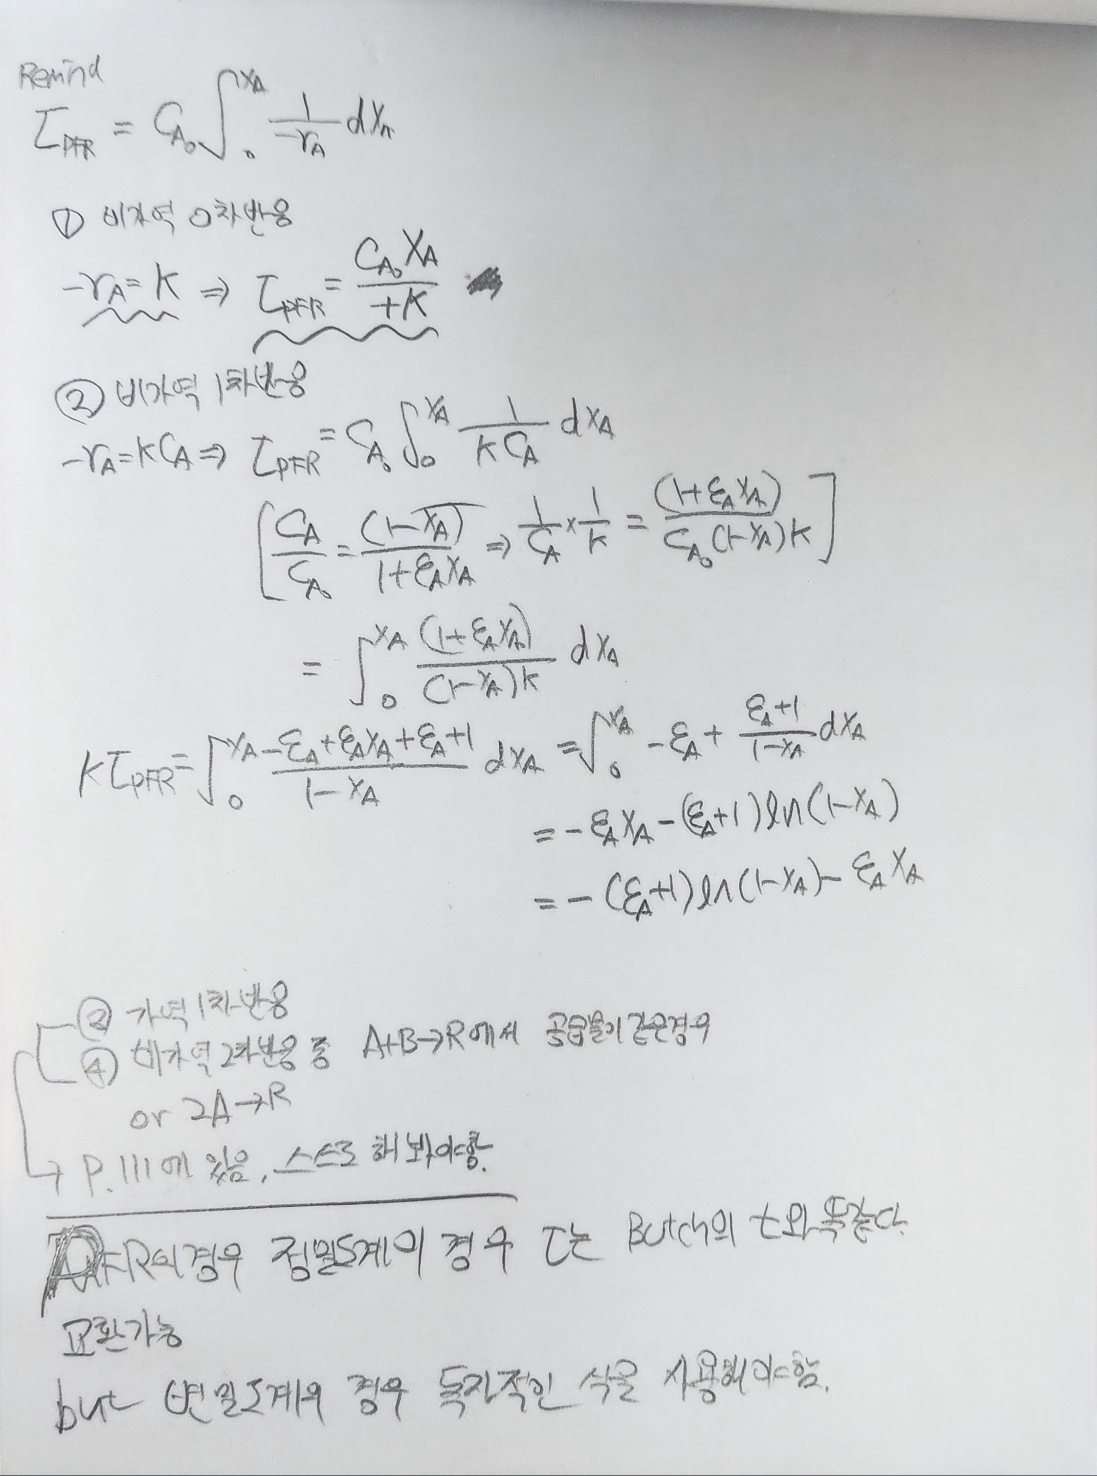 Remind
τ_PFR = C_A₀ ∫₀^X_A 1/(-r_A) dX_A
① 비가역 0차반응
-r_A = k ⇒ τ_PFR = C_A₀ X_A / +k
② 비가역 1차반응
-r_A = k C_A ⇒ τ_PFR = C_A₀ ∫₀^X_A 1/(k C_A) dX_A
[ C_A/C_A₀ = (1-X_A)/(1+ε_A X_A) ⇒ 1/C_A × 1/k = (1+ε_A X_A)/(C_A₀ (1-X_A) k) ]
= ∫₀^X_A (1+ε_A X_A)/((1-X_A) k) dX_A
k τ_PFR = ∫₀^X_A (-ε_A + ε_A X_A + ε_A + 1)/(1-X_A) dX_A = ∫₀^X_A -ε_A + (ε_A+1)/(1-X_A) dX_A
= -ε_A X_A - (ε_A+1) ln(1-X_A)
= -(ε_A+1) ln(1-X_A) - ε_A X_A
③ 가역 1차반응
④ 비가역 2차반응 중 A+B→R에서 공급물이 같은경우
or 2A→R
→ P.111에 있음, 스스로 해봐야함.
PFR의 경우 정밀도계의 경우 τ는 Butch의 t와 똑같다.
교환가능
but 변밀도계의 경우 독자적인 식을 사용해야함.